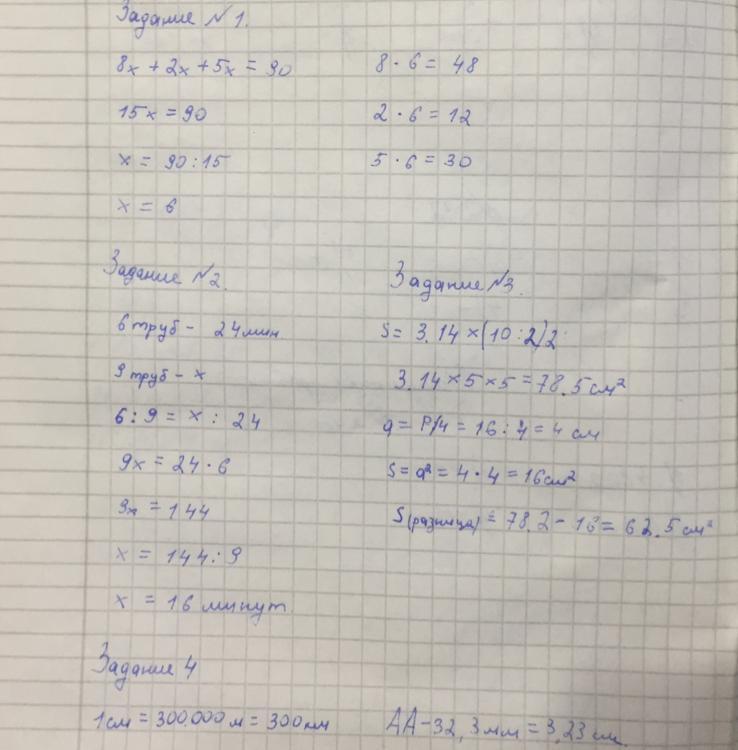 Задание №1.
8x + 2x + 5x = 90
15x = 90
x = 90 : 15
x = 6
8 · 6 = 48
2 · 6 = 12
5 · 6 = 30
Задание №2.
6 труб - 24 мин
9 труб - x
6 : 9 = x : 24
9x = 24 · 6
9x = 144
x = 144 : 9
x = 16 минут
Задание №3.
S = 3.14 × (10 : 2)2
3.14 × 5 × 5 = 78.5 см²
a = P/4 = 16 : 4 = 4 см
S = a² = 4 · 4 = 16 см²
S (разница) = 78.2 - 16 = 62.5 см²
Задание 4
1 см = 300.000 м = 300 км
АА - 32,3 мм = 3,23 см